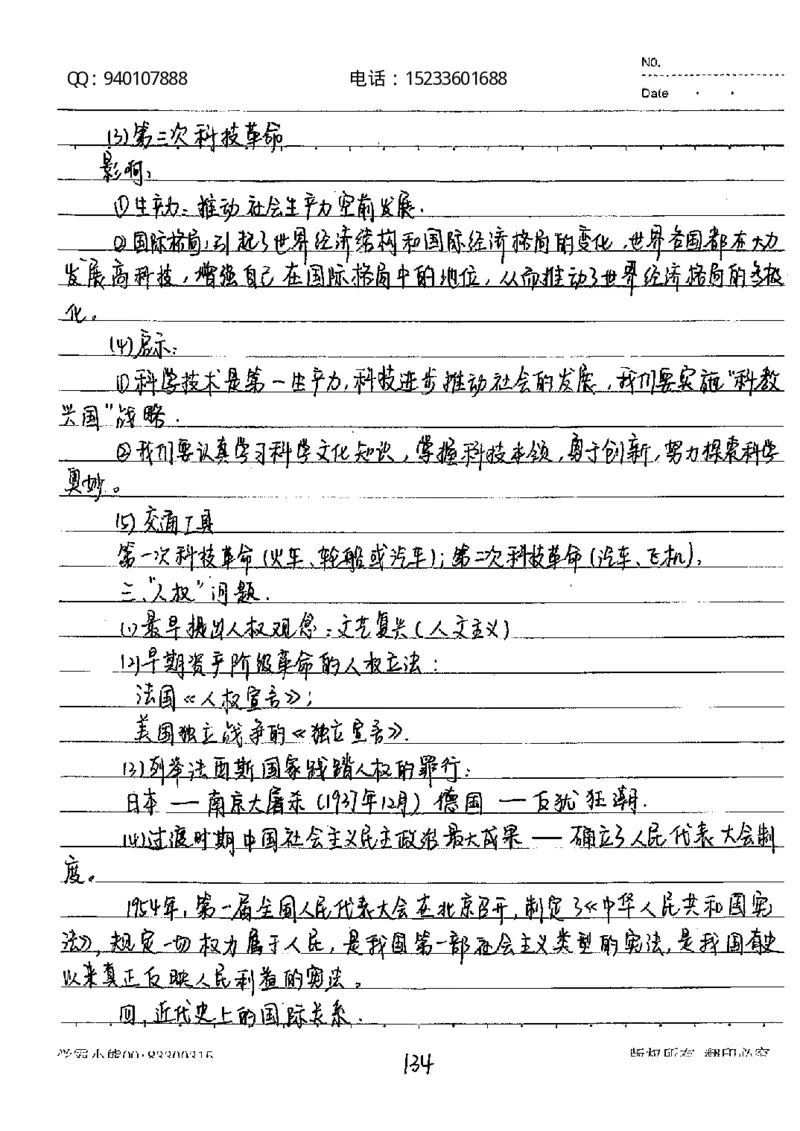 QQ：940107888 电话：15233601688 NO.
Date · ·
(3)第三次科技革命
影响：
①生产力：推动社会生产力空前发展.
②国际格局：引起了世界经济结构和国际经济格局的变化，世界各国都在大力
发展高科技，增强自己在国际格局中的地位，从而推动了世界经济格局的多极
化。
(4)启示：
①科学技术是第一生产力，科技进步推动社会的发展，我们要实施“科教
兴国”战略.
②我们要认真学习科学文化知识，掌握科技本领，勇于创新，努力探索科学
奥妙。
(5)交通工具
第一次科技革命(火车、轮船或汽车)；第二次科技革命(汽车、飞机)；
三、“人权”问题.
(1)最早提出人权观念：文艺复兴(人文主义)
(2)早期资产阶级革命的人权立法：
法国《人权宣言》；
美国独立战争的《独立宣言》.
(3)列举法西斯国家践踏人权的罪行：
日本 — 南京大屠杀(1937年12月) 德国 — 反犹狂潮.
(4)过渡时期中国社会主义民主政治最大成果 — 确立了人民代表大会制
度。
1954年，第一届全国人民代表大会在北京召开，制定了《中华人民共和国宪
法》，规定一切权力属于人民，是我国第一部社会主义类型的宪法，是我国有史
以来真正反映人民利益的宪法。
四、近代史上的国际关系.
学霸小熊QQ:83300315 134 版权所有 翻印必究